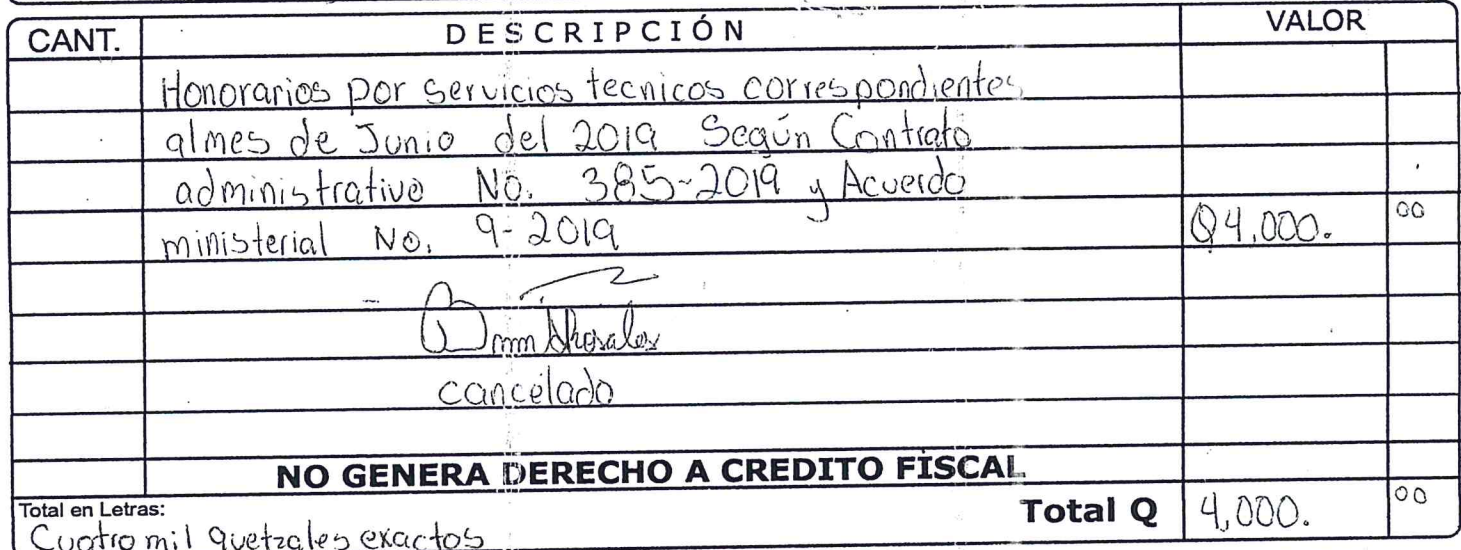 CANT. DESCRIPCIÓN VALOR
Honorarios por servicios tecnicos correspondientes
al mes de Junio del 2019 Según Contrato
administrativo No. 385-2019 y Acuerdo
ministerial No. 9-2019 Q4,000. 00
cancelado
NO GENERA DERECHO A CREDITO FISCAL
Total en Letras: Total Q 4,000. 00
Cuatro mil quetzales exactos